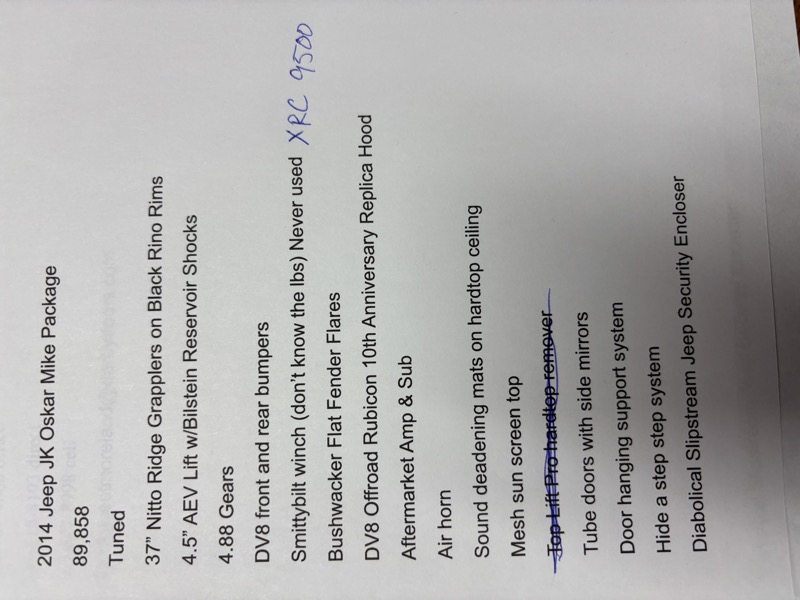 2014 Jeep JK Oskar Mike Package
89,858
Tuned
37” Nitto Ridge Grapplers on Black Rino Rims
4.5” AEV Lift w/Bilstein Reservoir Shocks
4.88 Gears
DV8 front and rear bumpers
Smittybilt winch (don’t know the lbs) Never used XRC 9500
Bushwacker Flat Fender Flares
DV8 Offroad Rubicon 10th Anniversary Replica Hood
Aftermarket Amp & Sub
Air horn
Sound deadening mats on hardtop ceiling
Mesh sun screen top
Top Lift Pro hardtop remover
Tube doors with side mirrors
Door hanging support system
Hide a step step system
Diabolical Slipstream Jeep Security Encloser